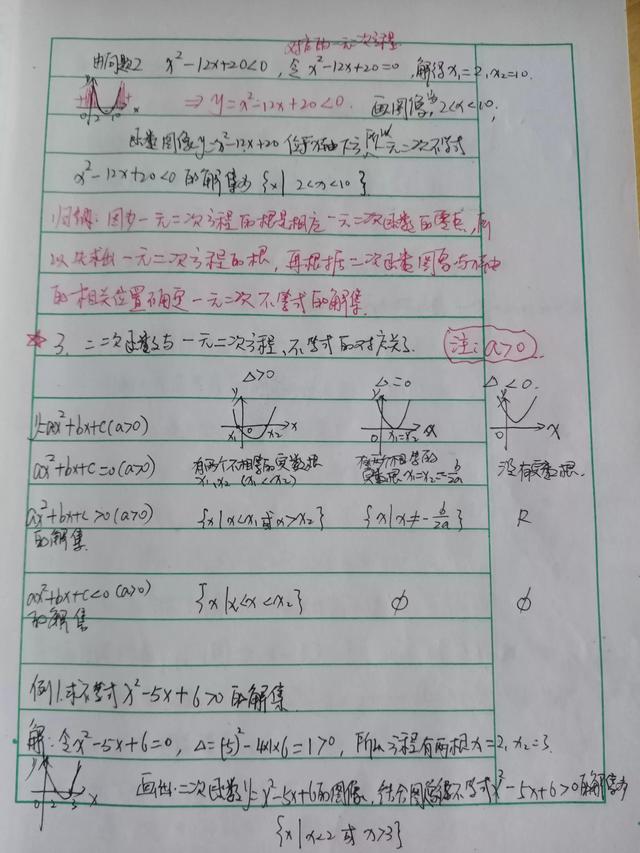 对应的一元二次方程
由问题2 x²-12x+20<0,令x²-12x+20=0,解得x₁=2,x₂=10.
⇒y=x²-12x+20<0. 画图像 当2<x<10,
0 2 10 x
函数图像y=x²-12x+20位于x轴下方,所以一元二次不等式
x²-12x+20<0的解集为{x|2<x<10}.
归纳:因为一元二次方程的根是相应一元二次函数的零点,所
以先求出一元二次方程的根,再根据二次函数图像与x轴
的相关位置确定一元二次不等式的解集.
3、二次函数与一元二次方程,不等式的对应关系. 注:a>0
△>0 △=0 △<0.
y x₁ 0 x₂ x y 0 x₁=x₂ x y x
y=ax²+bx+c(a>0)
ax²+bx+c=0(a>0) 有两个不相等的实数根 x₁,x₂ (x₁<x₂) 有两个相等的实数根x₁=x₂=-b/2a 没有实数根.
ax²+bx+c>0(a>0) {x|x<x₁或x>x₂} {x|x≠-b/2a} R
的解集
ax²+bx+c<0(a>0) {x|x₁<x<x₂} ∅ ∅
的解集
例1.求不等式x²-5x+6>0的解集.
解:令x²-5x+6=0,△=(-5)²-4×1×6=1>0,所以方程有两根x₁=2,x₂=3.
0 2 3 x
画出二次函数y=x²-5x+6的图像,结合图像得不等式x²-5x+6>0的解集为
{x|x<2或x>3}